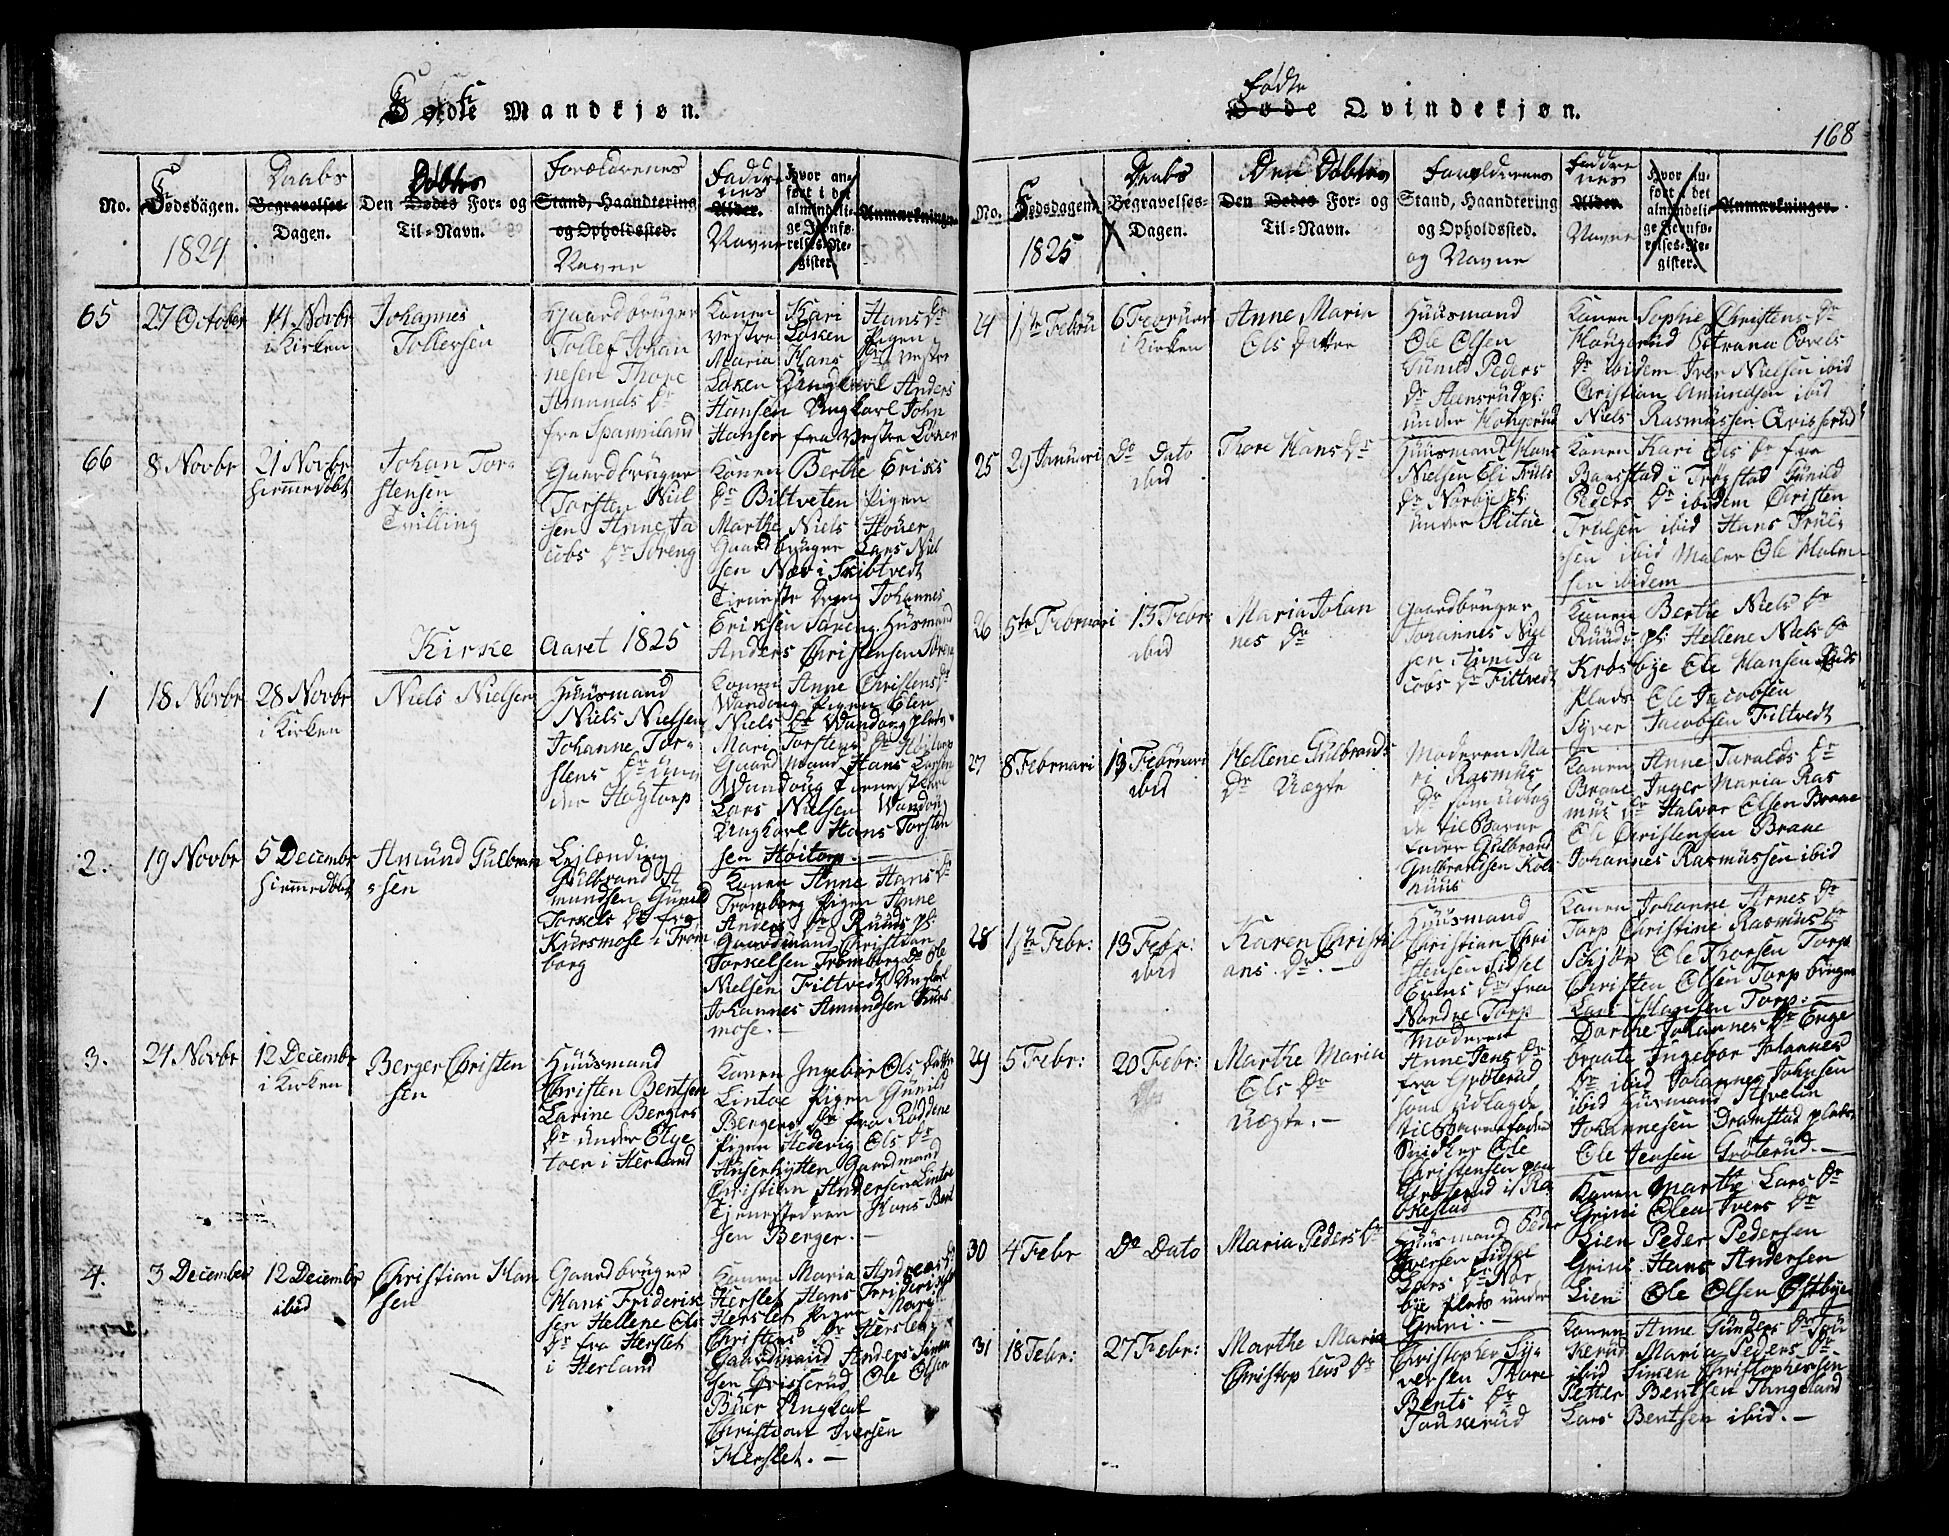 Fødte Mandkjøn.
No.
Fødsdagen.
1824
Daabs
Begravelses-
Dagen.
Døbtes
Den Dødes For- og
Til-Navn.
Forældrenes
Stand, Haandtering
og Opholdssted.
Navne
Faddre
nes
Alder.
Navne
Hvor an-
ført i det
almindeli-
ge Jevnfø-
relses-Re-
gister.
Anmærkninger
65
27 October
14 Novbr
i Kirken
Johannes
Tollefsen
Gaardbrüger
Tollef Johan
nesen Thore
Amunds Dr
fra Spanniland
Konen Kari Hans Dr
vestre Løken Pigen
Maria Hans Dr vestre
Løken Ungkarl Anders
Hansen Ungkarl John
Hansen fra vestre Løken
66
8 Novbr
21 Novbr
hiemmedøbt
Johan Tor-
stensen
Tvilling
Gaardbrüger
Torsten Niel
sen Anne Ja
cobs Dr Søreng
Konen Berthe Eriks
Dr Biltveten Pigen
Marthe Niels
Gaardbrüger Lars Niel
sen Næv i Skibtvedt
Tieneste Dreng Johannes
Eriksen Søreng Hüsmand
Anders Christensen Søreng
Kirke Aaret 1825
1
18 Novbr
28 Novbr
i Kirken
Niels Nielsen
Huusmand
Niels Nielsen
Johanne Tor-
stens Dr ün
der Høytorp
Konen Anne Christens Dr
Wandoug Pigen Elen
Niels Dr Wandoug plads
Mari Torstens Dr Høitorp
Gaardmand Hans Larsen
Wandoug Tieneste
Lars Nielsen Wandoug
Ungkarl Hans Torsten
sen Høitorp. —
2.
19 Novbr
5 Decembr
hiemmedøbt
Amünd Gülbran
sen
Leilænding
Gülbrand A
mundsen Gunild
Torkels Dr fra
Kjærsmose i Trøm
borg
Konen Anne Hans Dr
Trømborg Pigen Anne
Anders Dr Ruuds pl:
Gaardmand Christian
Torkelsen Trømborg Do Ole
Nielsen Filtvedt Ungkarl
Johannes Amundsen Kiærs
mose. —
3.
24 Novbr
12 Decembr
i Kirken
Berger Christen
sen
Huusmand
Christen Bentsen
Larine Bergers
Dr under Elge
toen i Herland
Konen Ingebor Ols Datter
Lintoe Pigen Günild
Bergers Dr fra Røddene
Pigen Hedevig Ols Dr
Huserhytten Gaardmand
Christian Andersen Lintoe
Tjenestedreng Hans Bent
sen Berger. —
4.
3 December
12 Decembr
ibid
Christian Han
sen
Gaardbrüger
Hans Friderik
sen Hellene Ols
Dr fra Herslet
i Herland
Konen Maria Andreas Dr
Herslet Hans Fridriks
Herslet Pigen Mari
Christens Dr Herslet
Gaardmand Anders Simen
sen Grisserud Ole Olsen
Buer Ungkarl
Christian Iversen
Herslet. —
Fødte
Døde Qvindekjøn.
168
No.
Fødsdagen.
1825
Daabs
Begravelses-
Dagen.
Den Døbtes
Den Dødes For- og
Til-Navn.
Forældrenes
Stand, Haandtering
og Opholdssted.
og Navne
Faddre
nes
Alder.
Navne
Hvor an-
ført i det
almindeli-
ge Jevnfø-
relses-Re-
gister.
Anmærkninger.
24
1ste Febru
6 Februar
i Kirken
Anne Maria
Ols Datter
Huusmand
Ole Olsen
Gunild Peders
Dr Hansrud pl:
under Kongerud
Konen Sophie Christens Dr
Kongerud Povels
Dr ibidem Iver Nielsen ibid
Christian Amundsen ibid
Niels Rasmussen Grisserud
25
29 Januari
Do Dato
ibid
Thore Hans Dr
Huusmand Hans
Nielsen Eli Truls
Dr Norbye pl:
under Skitue
Konen Kari Ols Dr fra
Baastad i Trøgstad Gunild
Peders Dr ibidem Christen
Trulsen ibid Hans Trul-
sen ibid Maler Ole Malm-
sen ibidem
26
5te Februari
13 Febr:
ibid
Maria Johan
nes Dr
Gaardbrüger
Johannes Niel
sen Anne Ja
cobs Dr Filtvedt
Konen Berthe Niels Dr
Ruuds pl: Hellene Niels Dr
Krosbye Ole Hansen Ruds
Plads Ole Jacobsen
Syver Jacobsen Filtvedt
27
8 Februari
13 Februari
ibid
Hellene Gulbrands
Dr Uægte
Moderen Ma
ri Rasmus
Dr som udlag
de til Barne
fader Gulbrand
Gulbrandsen Kols
huus
Konen Anne Taralds Dr
Braae Inger Maria Ras
mus Dr Halvor Olsen Braae
Ole Christensen Braae
Johannes Rasmussen ibid
28
1ste Febr:
13 Febr:
ibid
Karen Christi
ans. Dr. —
Huusmand
Christian Chri
stensen Sidsel
Evens Dr fra
Nordre Torp
Konen Johanne Arnes Dr
Torp Christine Rasmus Dr
Schjør Ole Thorsen Torp
Christen Olsen Torp bruger
Lars Hansen Torp. —
29
5 Febr:
20 Febr:
Marthe Maria
Ols Dr
Uægte. —
Moderen
Anne Jens Dr
fra Grøterud
som udlagde
til Barnefader
Sadler Ole
Christensen paa
Grøterud i Ra
kkestad
Dorthe Johannes Dr Enge
braate Ingebor Johannes
Dr ibid Johannes Johnsen
ibid Husmand
Johannesen Dramstad plads
Ole Jensen Grøterud. —
30
4 Febr
Do Dato
Maria Peders Dr
Huusmand Peder
Iversen Sidsel
Lars Dr Nor
bye Plads under
Grini. —
Konen Marthe Lars Dr
Grini Olea Ivers Dr
Lien Peder Pedersen
Grini Hans Andersen
Lien Ole Olsen Østbye
31
18 Febr:
27 Febr:
Marthe Maria
Christophers Dr
Christopher Sy-
versen Thore
Bents Dr
Touserud
Konen Anne Gunders Dr Tou
serud Maria Peders Dr
ibid Simen Christophersen
Petter Bentsen Tangeland
Lars Bentsen ibid. —